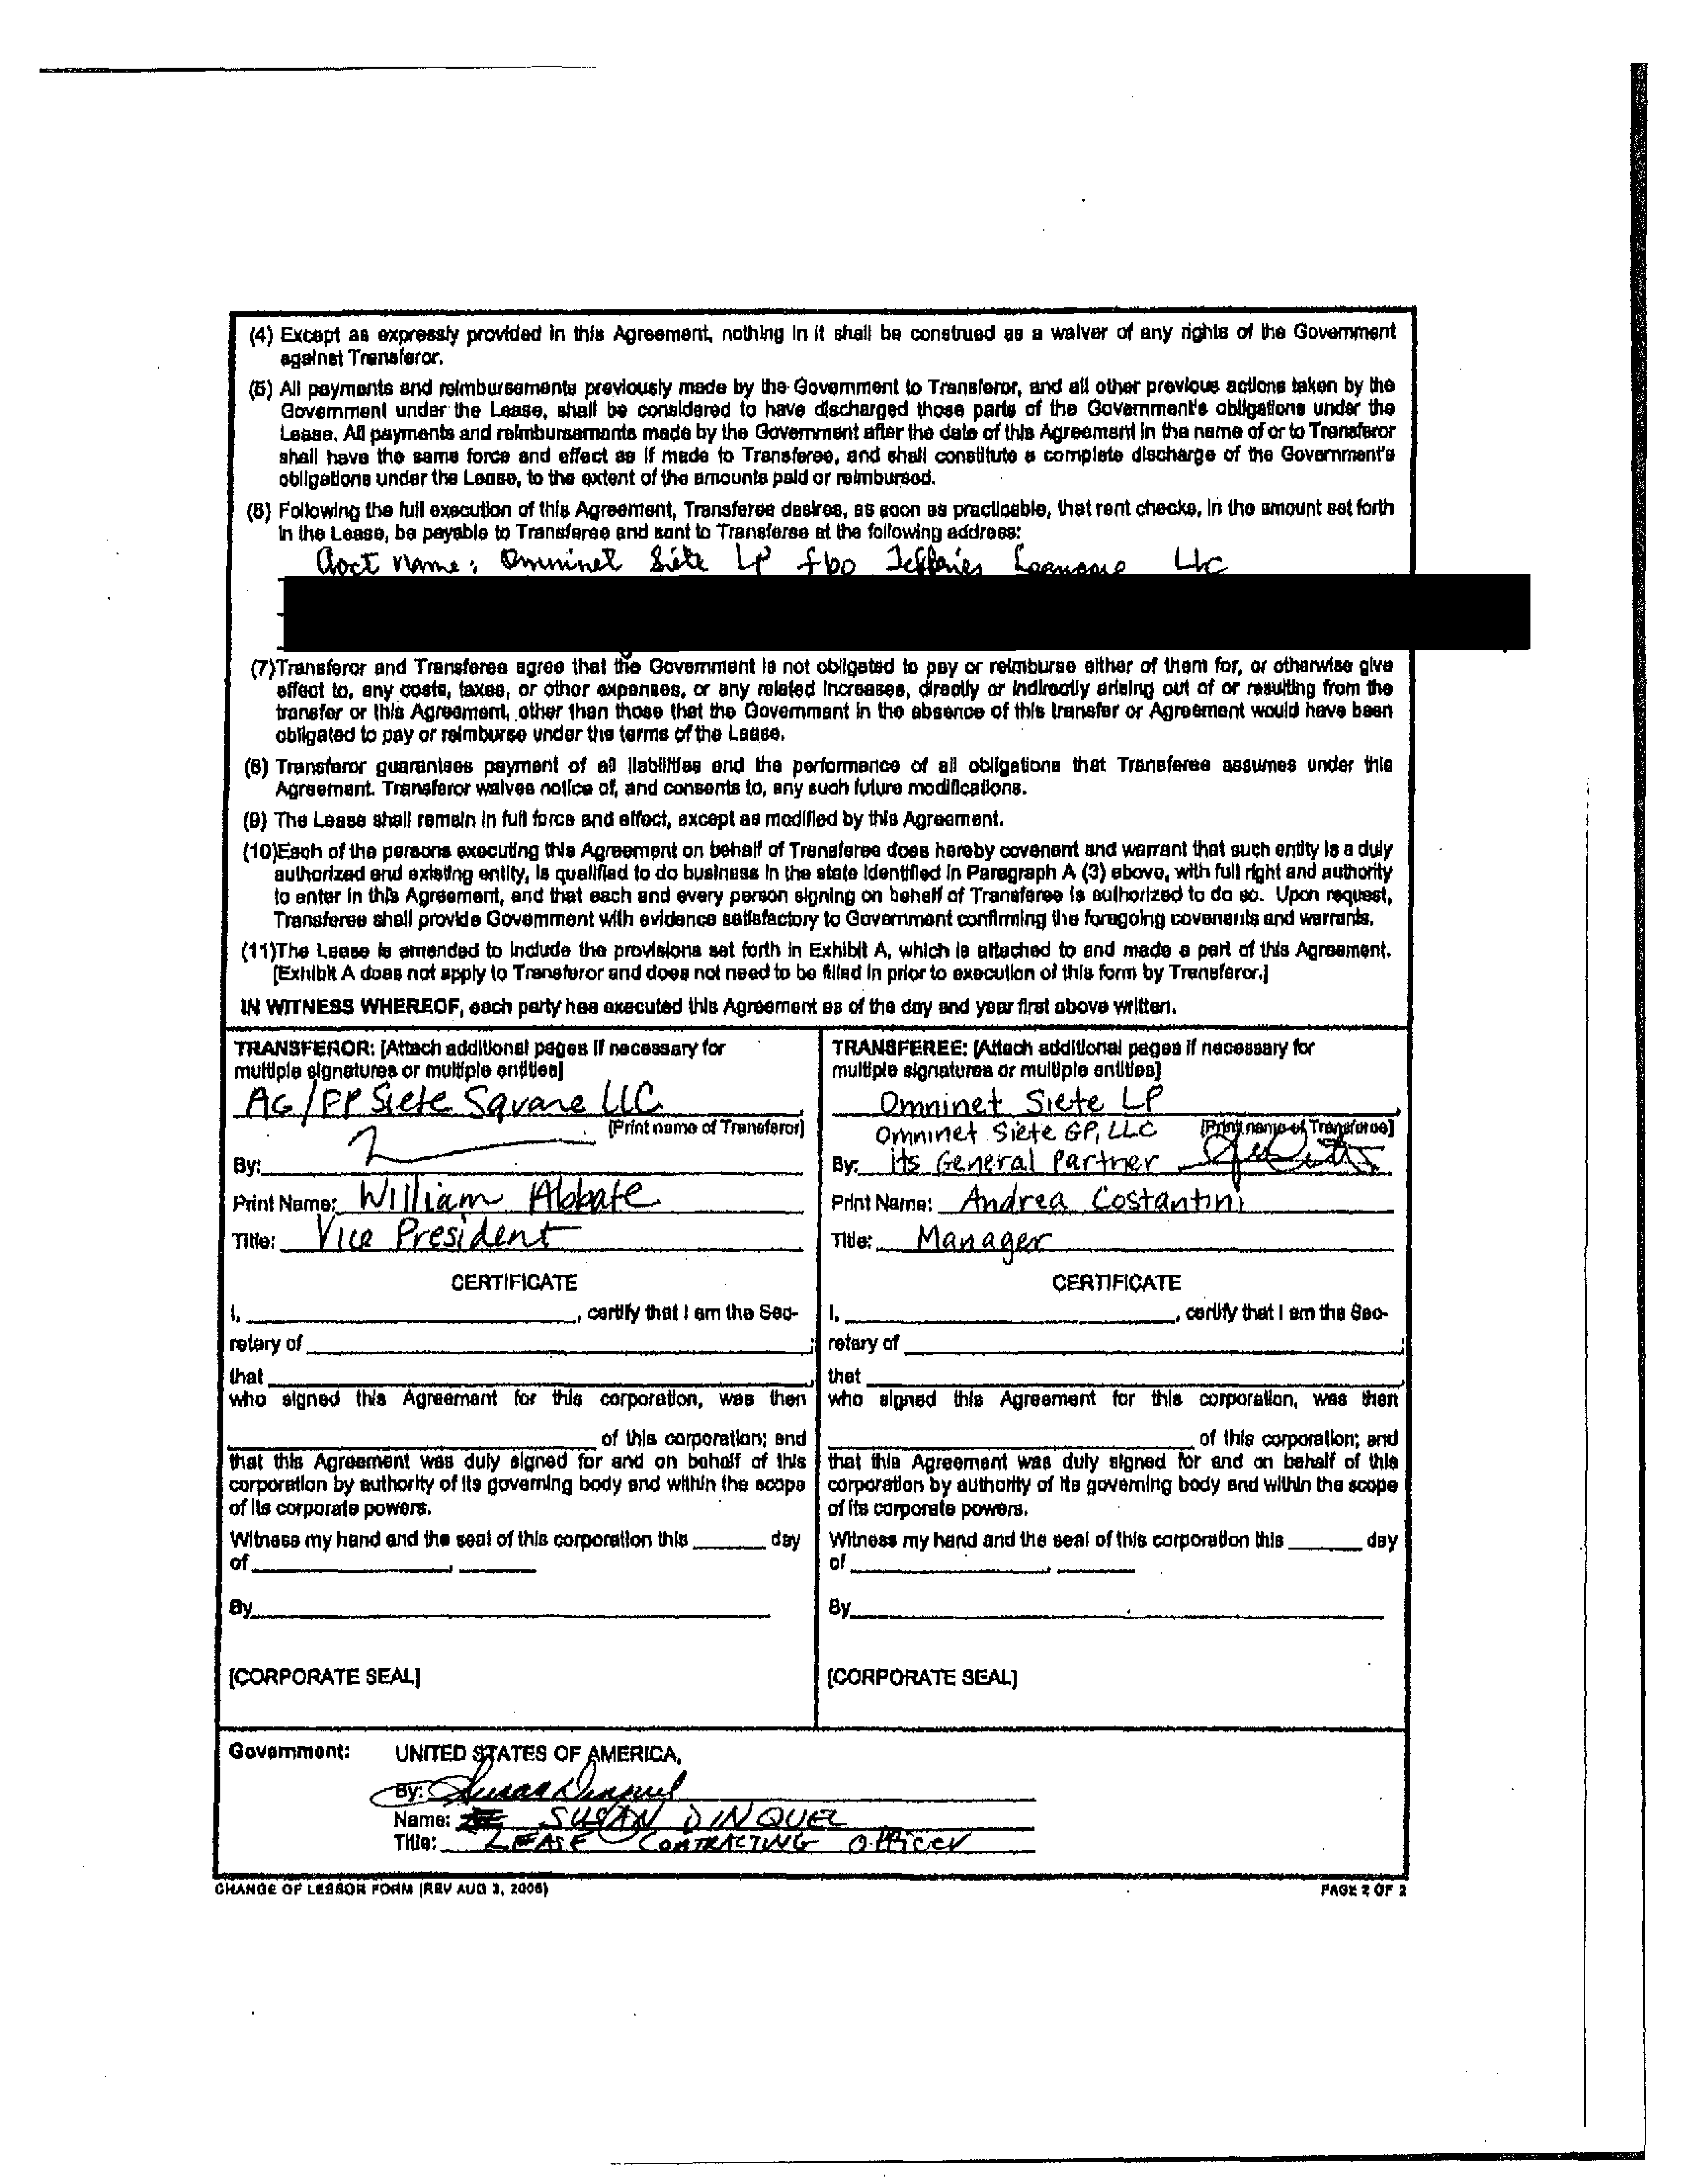 (4) Except as expressly provided in this Agreement, nothing in it shall be construed as a waiver of any rights of the Government
against Transferor.
(5) All payments and reimbursements previously made by the Government to Transferor, and all other previous actions taken by the
Government under the Lease, shall be considered to have discharged those parts of the Government's obligations under the
Lease. All payments and reimbursements made by the Government after the date of this Agreement in the name of or to Transferor
shall have the same force and effect as if made to Transferee, and shall constitute a complete discharge of the Government's
obligations under the Lease, to the extent of the amounts paid or reimbursed.
(6) Following the full execution of this Agreement, Transferee desires, as soon as practicable, that rent checks, in the amount set forth
in the Lease, be payable to Transferee and sent to Transferee at the following address:
Acct name: Omninet Siete LP fbo Jefferies LLC
(7)Transferor and Transferee agree that the Government is not obligated to pay or reimburse either of them for, or otherwise give
effect to, any costs, taxes, or other expenses, or any related increases, directly or indirectly arising out of or resulting from the
transfer or this Agreement, other than those that the Government in the absence of this transfer or Agreement would have been
obligated to pay or reimburse under the terms of the Lease.
(8) Transferor guarantees payment of all liabilities and the performance of all obligations that Transferee assumes under this
Agreement. Transferor waives notice of, and consents to, any such future modifications.
(9) The Lease shall remain in full force and effect, except as modified by this Agreement.
(10)Each of the persons executing this Agreement on behalf of Transferee does hereby covenant and warrant that such entity is a duly
authorized and existing entity, is qualified to do business in the state identified in Paragraph A (3) above, with full right and authority
to enter in this Agreement, and that each and every person signing on behalf of Transferee is authorized to do so. Upon request,
Transferee shall provide Government with evidence satisfactory to Government confirming the foregoing covenants and warrants.
(11)The Lease is amended to include the provisions set forth in Exhibit A, which is attached to and made a part of this Agreement.
[Exhibit A does not apply to Transferor and does not need to be filled in prior to execution of this form by Transferor.]
IN WITNESS WHEREOF, each party has executed this Agreement as of the day and year first above written.
TRANSFEROR: [Attach additional pages if necessary for
multiple signatures or multiple entities]
AG/PP Siete Square LLC
[Print name of Transferor]
By:
Print Name: William Abbate
Title: Vice President
CERTIFICATE
I, , certify that I am the Sec-
retary of ;
that
who signed this Agreement for this corporation, was then
of this corporation; and
that this Agreement was duly signed for and on behalf of this
corporation by authority of its governing body and within the scope
of its corporate powers.
Witness my hand and the seal of this corporation this day
of ,
By
[CORPORATE SEAL]
TRANSFEREE: [Attach additional pages if necessary for
multiple signatures or multiple entities]
Omninet Siete LP
Omninet Siete GP, LLC [Print name of Transferee]
By: its General Partner
Print Name: Andrea Costantini
Title: Manager
CERTIFICATE
I, , certify that I am the Sec-
retary of ;
that
who signed this Agreement for this corporation, was then
of this corporation; and
that this Agreement was duly signed for and on behalf of this
corporation by authority of its governing body and within the scope
of its corporate powers.
Witness my hand and the seal of this corporation this day
of ,
By
[CORPORATE SEAL]
Government: UNITED STATES OF AMERICA,
By: Susan Dinquel
Name: SUSAN DINQUEL
Title: LEASE CONTRACTING Officer
CHANGE OF LESSOR FORM (REV AUG 3, 2006)
PAGE 2 OF 2